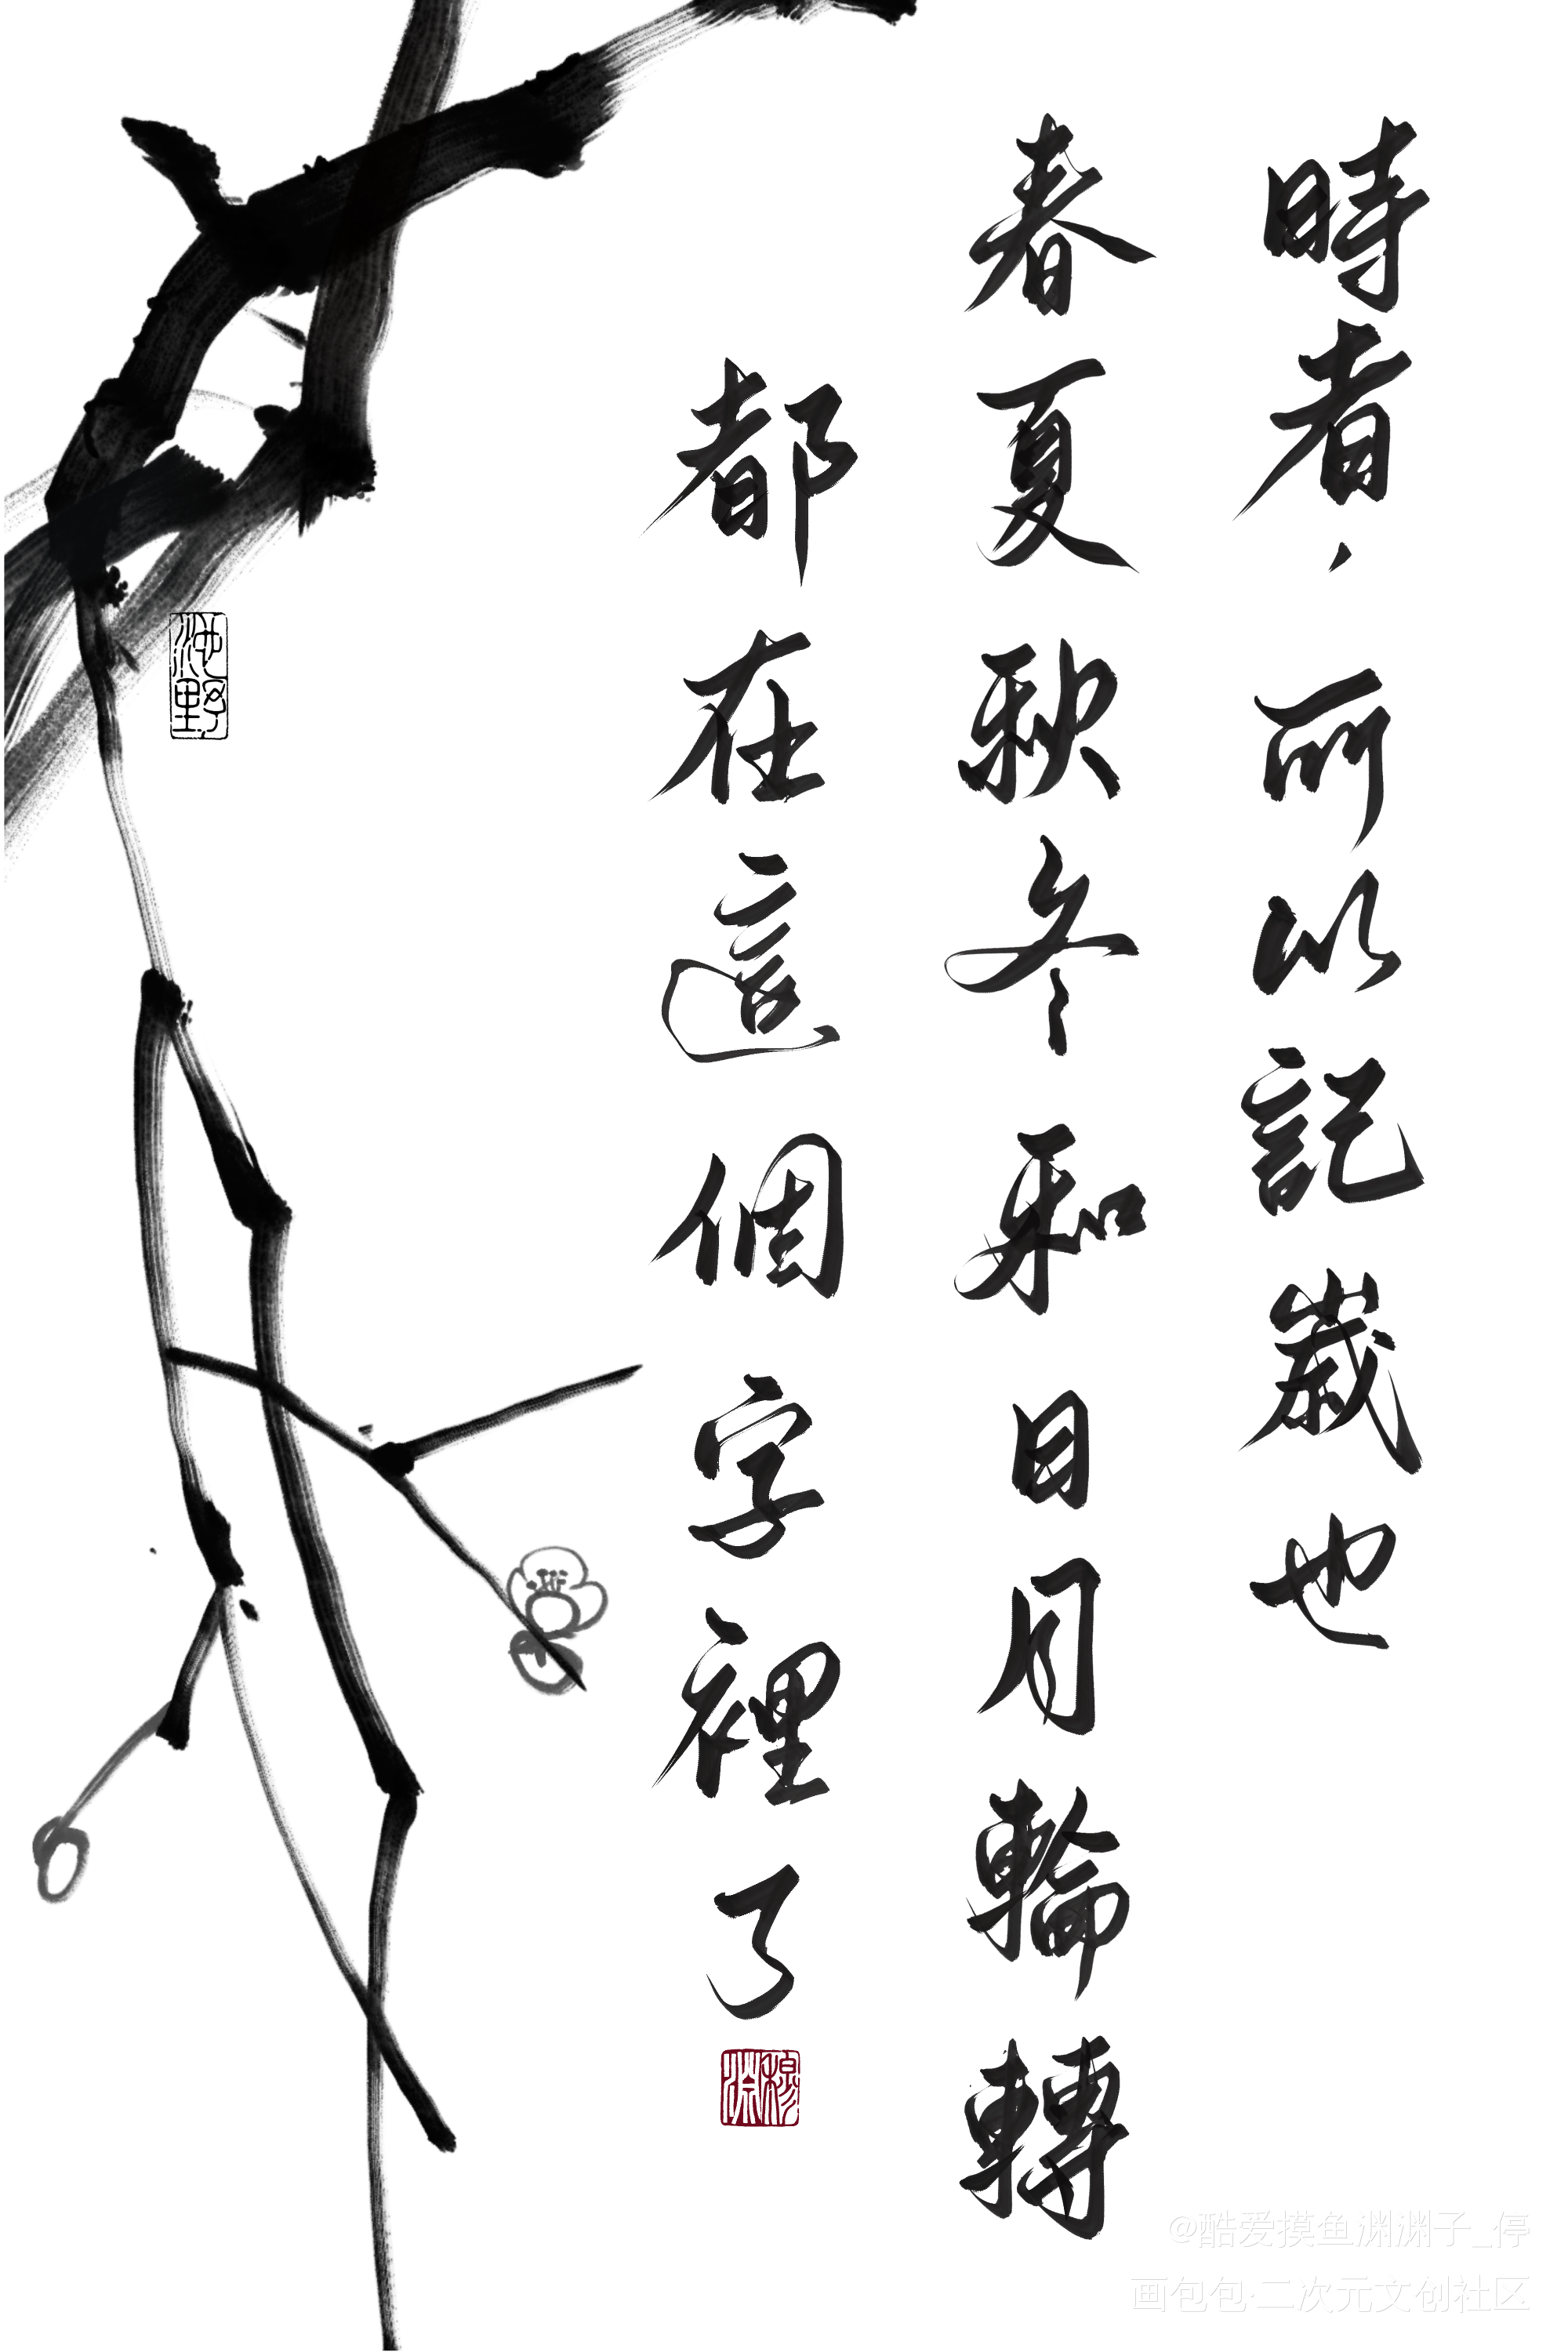 時者，所以記歲也
春夏秋冬和日月輪轉
都在這個字裡了
穆淵
池野
@酷爱摸鱼渊渊子_停
画包包·二次元文创社区